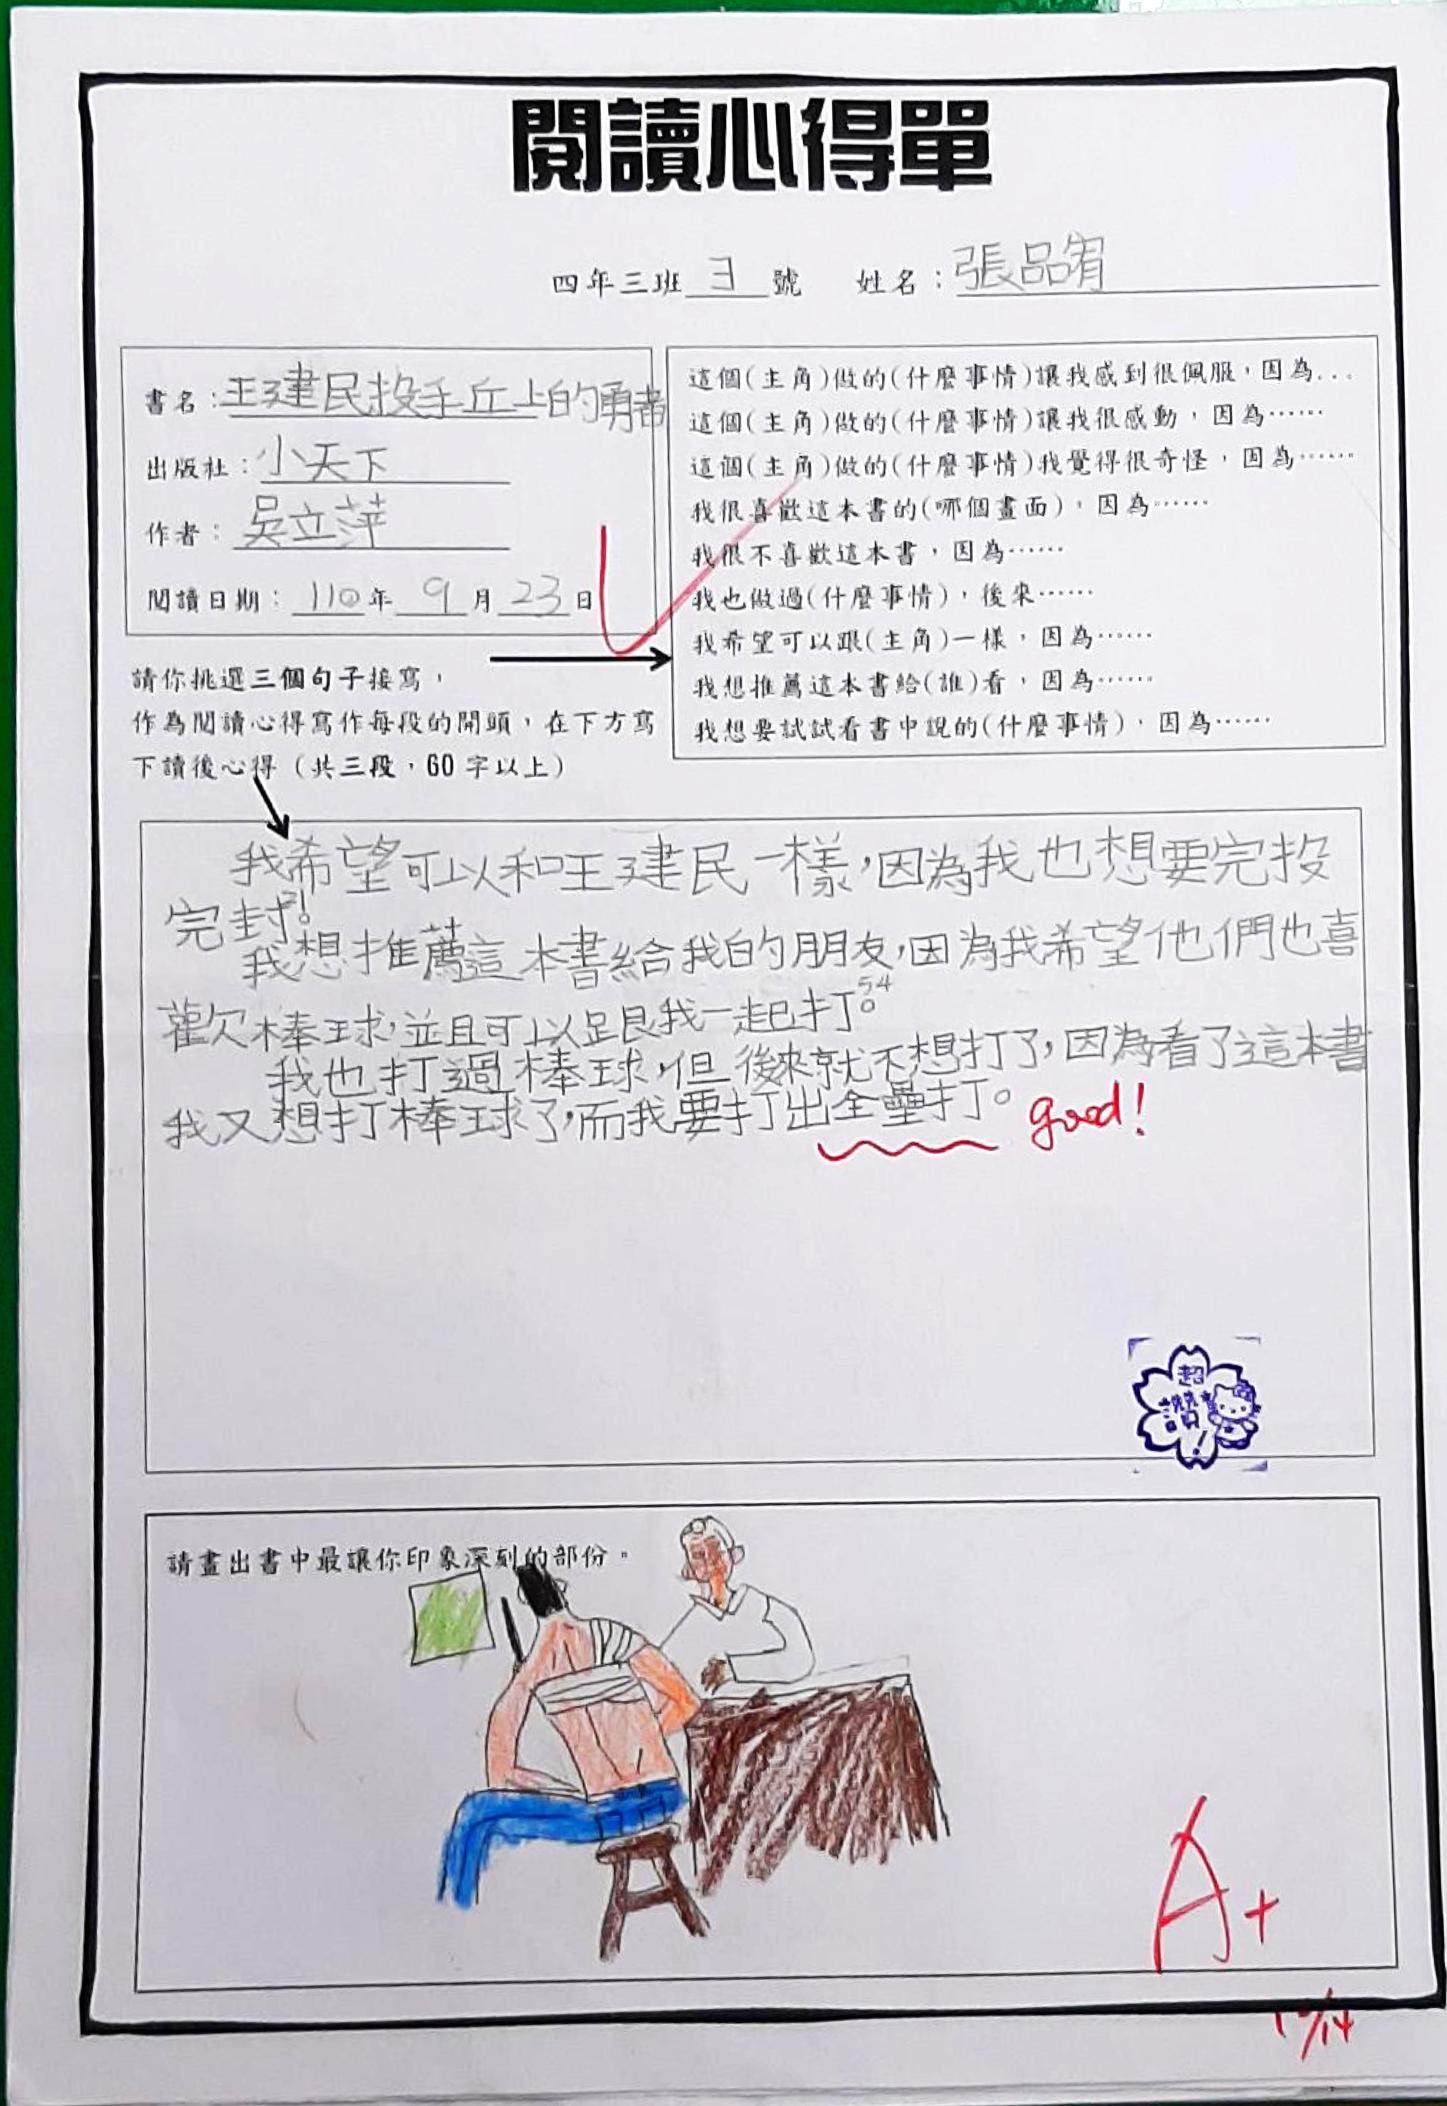 閱讀心得單
四年三班 3 號 姓名：張品宥
書名：王建民投手丘上的勇者
出版社：小天下
作者：吳立萍
閱讀日期：110年 9月 23日
這個(主角)做的(什麼事情)讓我感到很佩服，因為...
這個(主角)做的(什麼事情)讓我很感動，因為……
這個(主角)做的(什麼事情)我覺得很奇怪，因為……
我很喜歡這本書的(哪個畫面)，因為……
我很不喜歡這本書，因為……
我也做過(什麼事情)，後來……
我希望可以跟(主角)一樣，因為……
我想推薦這本書給(誰)看，因為……
我想要試試看書中說的(什麼事情)，因為……
請你挑選三個句子接寫，
作為閱讀心得寫作每段的開頭，在下方寫
下讀後心得（共三段，60字以上）
我希望可以和王建民一樣，因為我也想要完投
完封。21
我想推薦這本書給我的朋友，因為我希望他們也喜
歡棒球，並且可以跟我一起打。54
我也打過棒球，但後來就不想打了，因為看了這本書
我又想打棒球了，而我要打出全壘打。 good!
超
讚!
請畫出書中最讓你印象深刻的部份。
A+
10/14